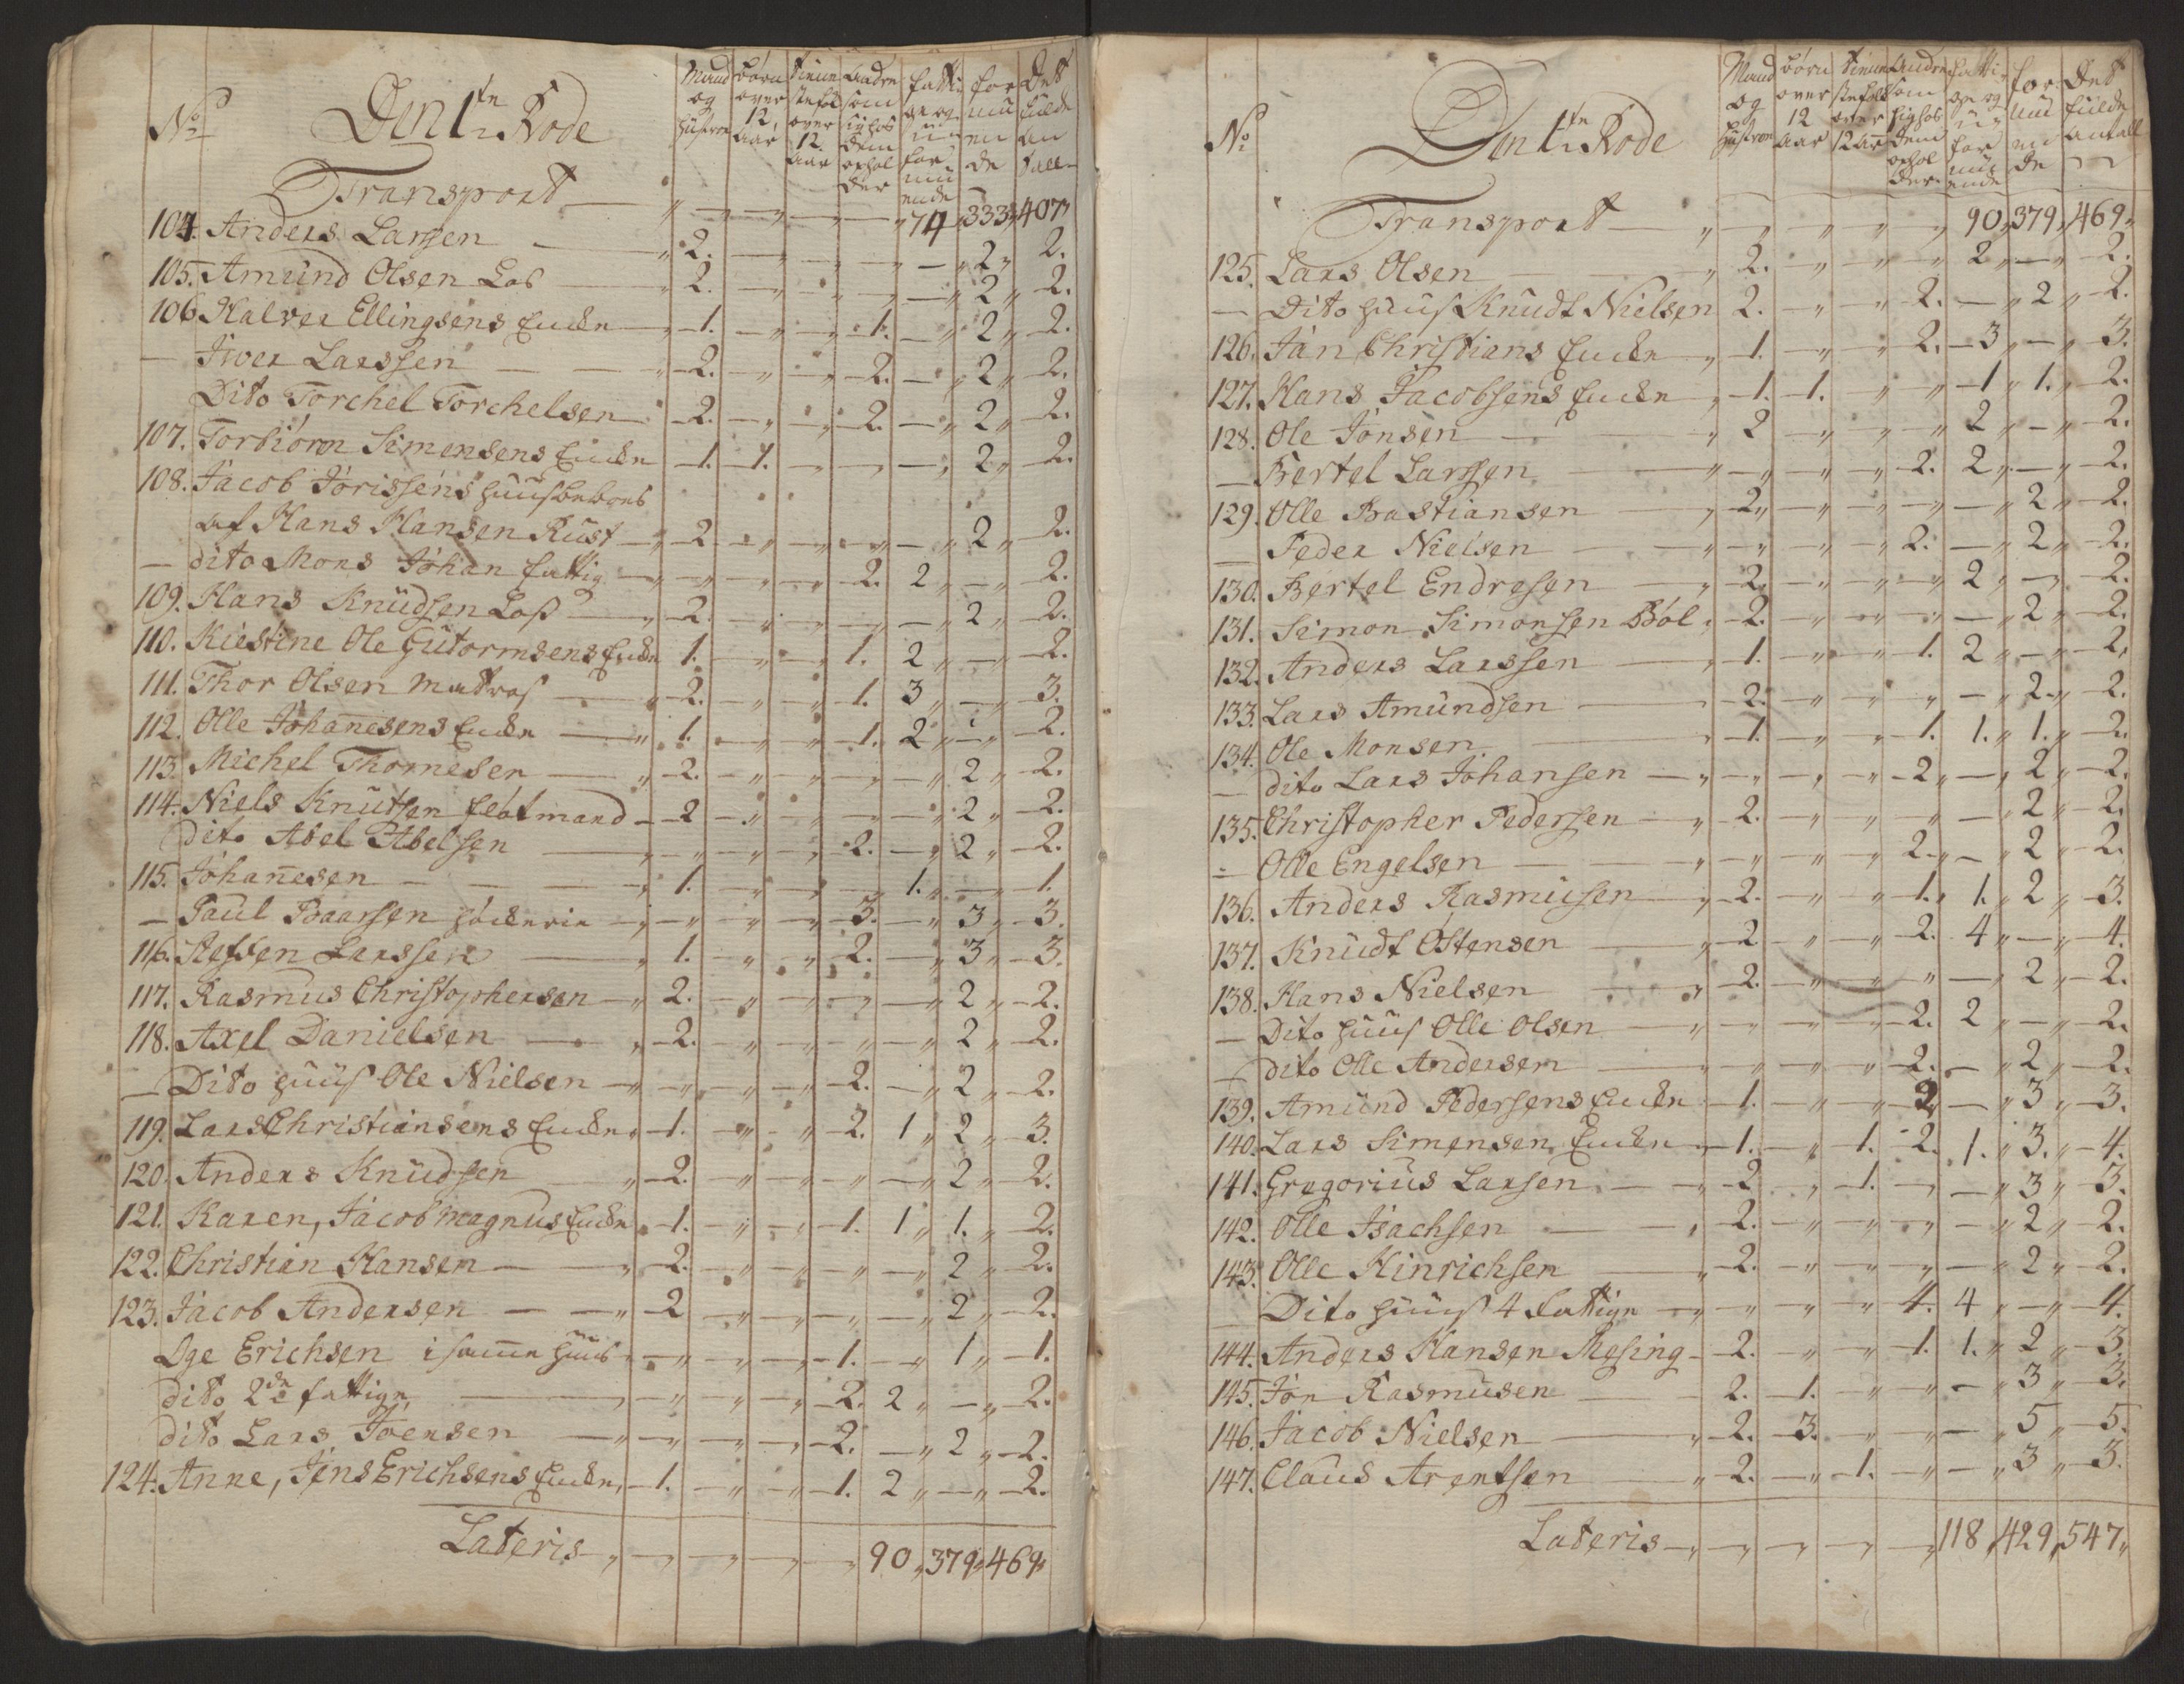 No Den 1te Rode Mand og Hustroe Børn over 12 Aar Tienneste folck over 12 Aar Andre som sig hos dem ophol der fatti ge og u for mu ende for mu en de Det fulde an tall
Transport 74 333 407
104. Anders Larsen 2. 2 2.
105. Amund Olsen Los 2. 2 2.
106 Halver Ellingsens Encke 1. 1. 2 2.
Iwer Larssen 2. 2. 2 2.
Dito Torchel Torchelsen 2. 2. 2 2.
107. Torbiørn Simensens Encke 1. 1. 2 2.
108. Jacob Jørissens huus beboes
af Hans Hansen Rust 2 2 2.
dito Mons Johan fattig 2. 2 2.
109. Hans Knudsen Loss 2. 2 2.
110. Kiestine Ole Gutormsens Encke 1. 1. 2 2.
111. Thor Olsen Matros 2. 1. 3 3.
112. Olle Johanesens Encke 1. 1. 2 2.
113. Michel Thomesen 2. 2 2.
114. Niels Knutsen fløtmand 2 2 2.
Dito Abel Abelsen 2. 2 2.
115. Johanesen 1. 1. 1.
Paul Baarsen 3. 3 3.
116. Larssen 1. 2. 3 3.
117. Rasmus Christophersen 2. 2 2.
118. Axel Danielsen 2. 2 2.
Dito huus Ole Nielsen 2. 2 2.
119. Lars Christiansens Encke 1. 2. 1 2 3.
120. Anders Knudsen 2. 2 2.
121. Karen, Jacob Magnus Encke 1. 1. 1 1. 2.
122. Christian Hansen 2. 2 2.
123. Jacob Andersen 2 2 2.
Oge Erichsen i samme huus 1. 1 1.
dito 2de fattige 2. 2 2.
dito Lars Joensen 2. 2 2.
124. Anne, Jens Erichsens Encke 1. 1. 2 2.
Lateris 90 379 469
No Den 1te Rode Mand og Hustroe Børn over 12 Aar Tienneste folck over 12 Aar Andre som sig hos dem ophol der fatti ge og u for mu ende for mu en de Det fulde antall
Transport 90 379 469
125. Lars Olsen 2. 2 2.
Dito huus Knudt Nielsen 2. 2. 2 2.
126. Jan Christians Encke 1. 2. 3 3.
127. Hans Jacobsens Encke 1. 1. 1 1. 2.
128. Ole Jonsen 2 2 2.
Bertel Larssen 2. 2 2.
129. Olle Bastiansen 2 2 2.
Peder Nielsen 2. 2 2.
130. Bertel Endresen 2. 2 2.
131. Simon Simonsen Bøl 2. 2 2.
132. Anders Larssen 1. 1. 2 2.
133. Lars Amundsen 2. 2 2.
134. Ole Monsen 1. 1. 1. 1. 2.
dito Lars Johansen 2 2 2.
135. Christopher Pedersen 2. 2 2.
Olle Engelsen 2. 2 2.
136. Anders Rasmusen 2. 1. 1. 2 3.
137. Knudt Østensen 2 2. 4 4.
138. Hans Nielsen 2. 2 2.
Dito huus Olle Olsen 2. 2 2.
dito Olle Andersen 2. 2 2.
139. Amund Pedersens Encke 1. 2 3 3.
140. Lars Simensen Encke 1. 1. 2. 1. 3. 4.
141. Gregorius Larsen 2 1. 3 3.
142. Olle Isachsen 2. 2 2.
143. Olle Hinrichsen 2. 2 2.
Dito huus 4 fattige 4. 4 4.
144. Anders Hansen Mesing 2. 1. 1. 2 3.
145. Jon Rasmusen 2. 1. 3 3.
146. Jacob Nielsen 2. 3. 5 5.
147. Claus Arentsen 2. 1. 3 3.
Lateris 118 429 547